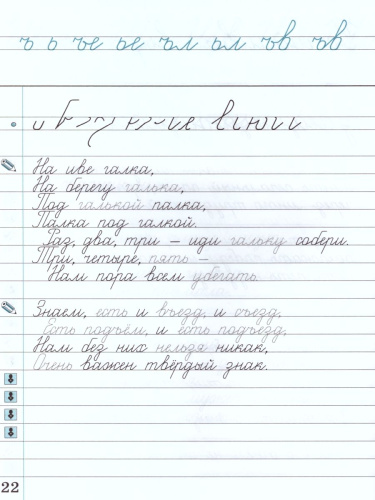 ъ ь ъе ье ъл ьл ъв ьв
На иве галка,
На берегу галька,
Под галькой палка,
Палка под галкой.
Раз, два, три – иди гальку собери.
Три, четыре, пять –
Нам пора всем убегать.
Знаем, есть и въезд, и съезд,
Есть подъём, и есть подъезд,
Нам без них нельзя никак,
Очень важен твёрдый знак.
22